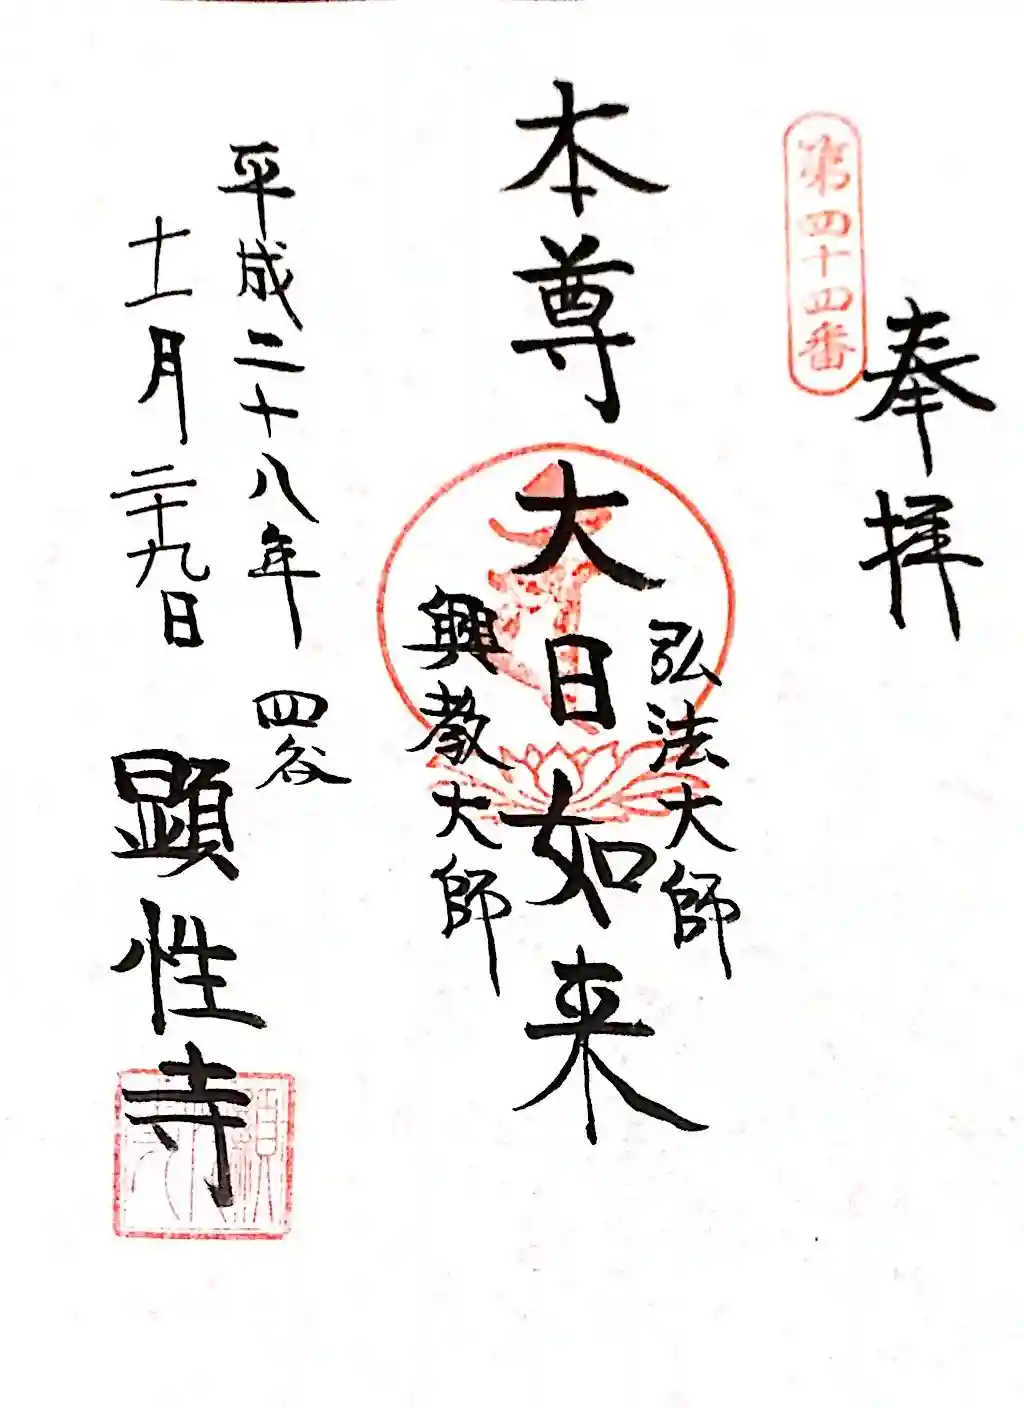 奉拝
第四十四番
弘法大師
本尊 大日如来
興教大師
平成二十八年 四谷
十一月二十九日 顕性寺